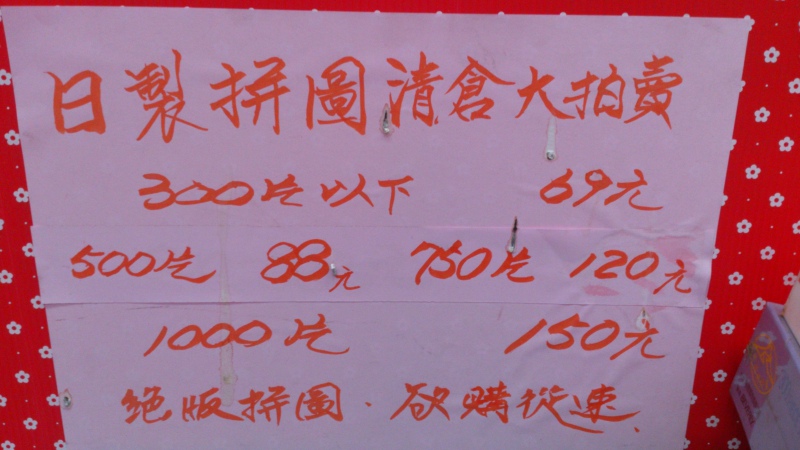 日製拼圖清倉大拍賣
300片以下 69元
500片 88元 750片 120元
1000片 150元
絕版拼圖．欲購從速